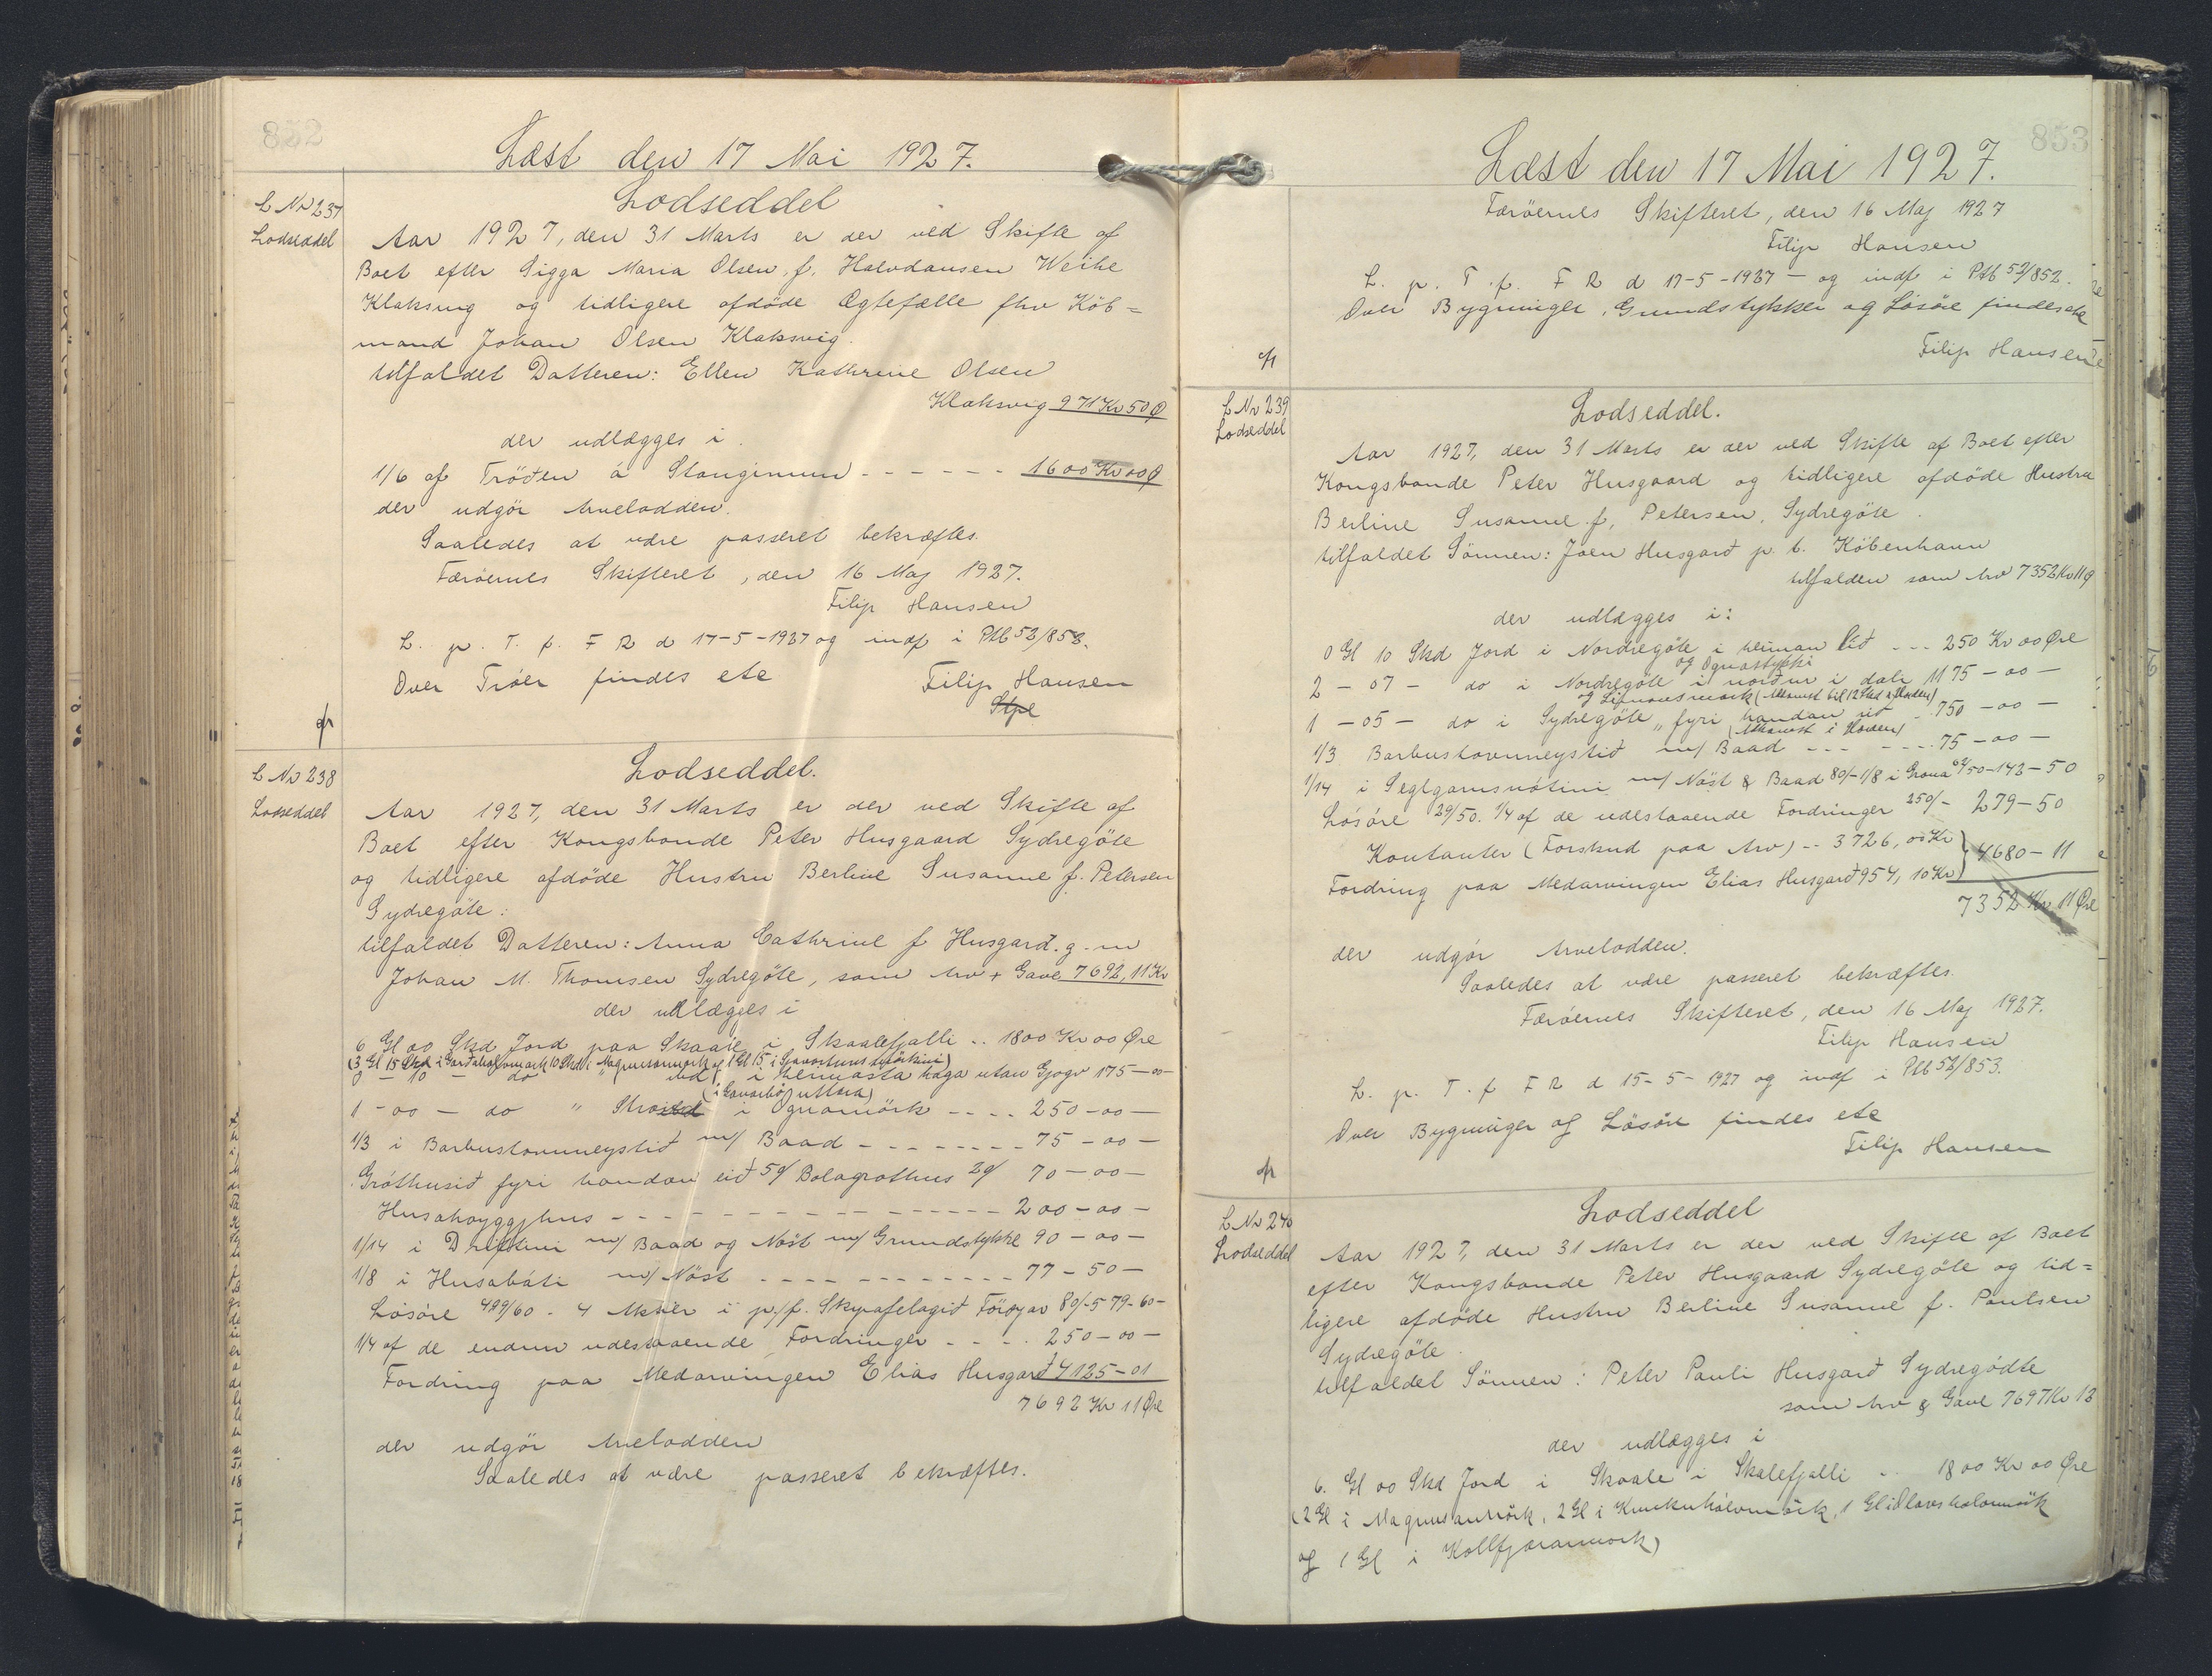 852
Læst den 17 Mai 1927.
L No 237
Lodseddel
Lodseddel
Aar 1927, den 31 Marts er der ved Skifte af
Boet efter Sigga Maria Olsen, f. Halvdansen Weihe
Klaksvig og tidligere afdöde Ægtefælle fhv Köb=
mand Johan Olsen Klaksvig.
tilfaldet Datteren: Ellen Kathrine Olsen
Klaksvig 971 Kr 50 Ø
der udlægges i.
1/6 af Tröðen á Stanginum - - - - - - 1600 Kr 00 Ø
der udgör Arvelodden.
Saaledes at være passeret bekræftes.
Færöernes Skifteret, den 16 Maj 1927.
Filip Hansen
L. p. T. f. F R d 17-5-1927 og indf i Ptb 52/852.
Over Tröer findes etc
Filip Hansen
L No 238
Lodseddel
Lodseddel.
Aar 1927, den 31 Marts er der ved Skifte af
Boet efter Kongsbonde Peter Husgaard Sydregöte
og tidligere afdöde Hustru Berline Susanne f. Petersen
Sydregöte:
tilfaldet Datteren: Anna Cathrine f Husgarð. g. m
Johan M. Thomsen Sydregöte, som Arv + Gave 7692,11 Kr
der udlægges i
6 Gl 00 Skd Jord paa Skaale i Skaalefjalli .. 1800 Kr 00 Øre
0 - 10 - do " i heimasta haga utan Gjogv 175-00-
1 - 00 - do " i Ognamörk - - - - 250-00-
1/3 i Barbustovuneystið m/ Baad - - - - - - - - 75-00-
Gróthusið fyri handan eið 50/ Bolagrothus 20/ 70-00-
Husahoyggjhus - - - - - - - - - - - - - - - 200-00-
1/14 i Driftini m/ Baad og Nöst m/ Grundstykke 90-00-
1/8 i Husabáti m/ Nöst - - - - - - - - - - - 77-50-
Lösöre 499/60 - 4 Aktier i p/f. Skipafelagið Föroyar 80/- 579-60-
1/4 af de endnu udestaaende Fordringer - - - . 250-00-
Fordring paa Medarvingen Elias Husgarð 4125-01
7692 Kr 11 Øre
der udgör Arvelodden
Saaledes at være passeret bekræftes.
853
Læst den 17 Mai 1927.
Færöernes Skifteret, den 16 Maj 1927
Filip Hansen
L. p. T. f. F R d 17-5-1927 - og indf i Ptb 52/852.
Over Bygninger, Grundstykker og Lösöre findes etc
Filip Hansen
L No 239
Lodseddel
Lodseddel.
Aar 1927, den 31 Marts er der ved Skifte af Boet efter
Kongsbonde Peter Husgaard og tidligere afdöde Hustru
Berline Susanne f. Petersen, Sydregöte.
tilfaldet Sönnen: Joen Husgarð p. t. Köbenhavn
tilfalden som Arv 7352 Kr 11 Ø
der udlægges i:
0 Gl 10 Skd Jord i Nordregöte i heiman lið - - . 250 Kr 00 Øre
og Ognastykki
2 - 07 - do i Nordregöte i norður i dali 1175-00-
1 - 05 - do i Sydregöte " fyri handan - 750-00-
1/3 Barbustovuneystið m/ Baad - - - - - - - 75-00-
1/14 i Seglgarnsnótini m/ Nöst & Baad 80/- 1/8 i Grona 62/50-142-50
Lösöre 29/50. 1/4 af de udestaaende Fordringer 250/- 279-50
Kontanter (Forskud paa Arv) -- 3726,00 Kr
Fordring paa Medarvingen Elias Husgarð 954,10 Kr } 4680-11
7352 Kr 11 Øre
der udgör Arvelodden.
Saaledes at være passeret bekræftes.
Færöernes Skifteret, den 16 Maj 1927.
Filip Hansen
L. p. T. f F R d 15-5-1927 og indf i Ptb 52/853.
Over Bygninger og Lösöre findes etc
Filip Hansen
L No 240
Lodseddel
Lodseddel
Aar 1927, den 31 Marts er der ved Skifte af Boet
efter Kongsbonde Peter Husgaard Sydregöte og tid=
ligere afdöde Hustru Berline Susanne f. Poulsen
Sydregöte.
tilfaldet Sönnen: Peter Pauli Husgarð Sydregödte
som Arv & Gave 7697 Kr 12
der udlægges i
6. Gl 00 Skd Jord i Skaale i Skalefjalli .. 1800 Kr 00 Øre
(2 Gl i Magnusarmörk, 2 Gl i
og 1 Gl i Kollfjaramörk)